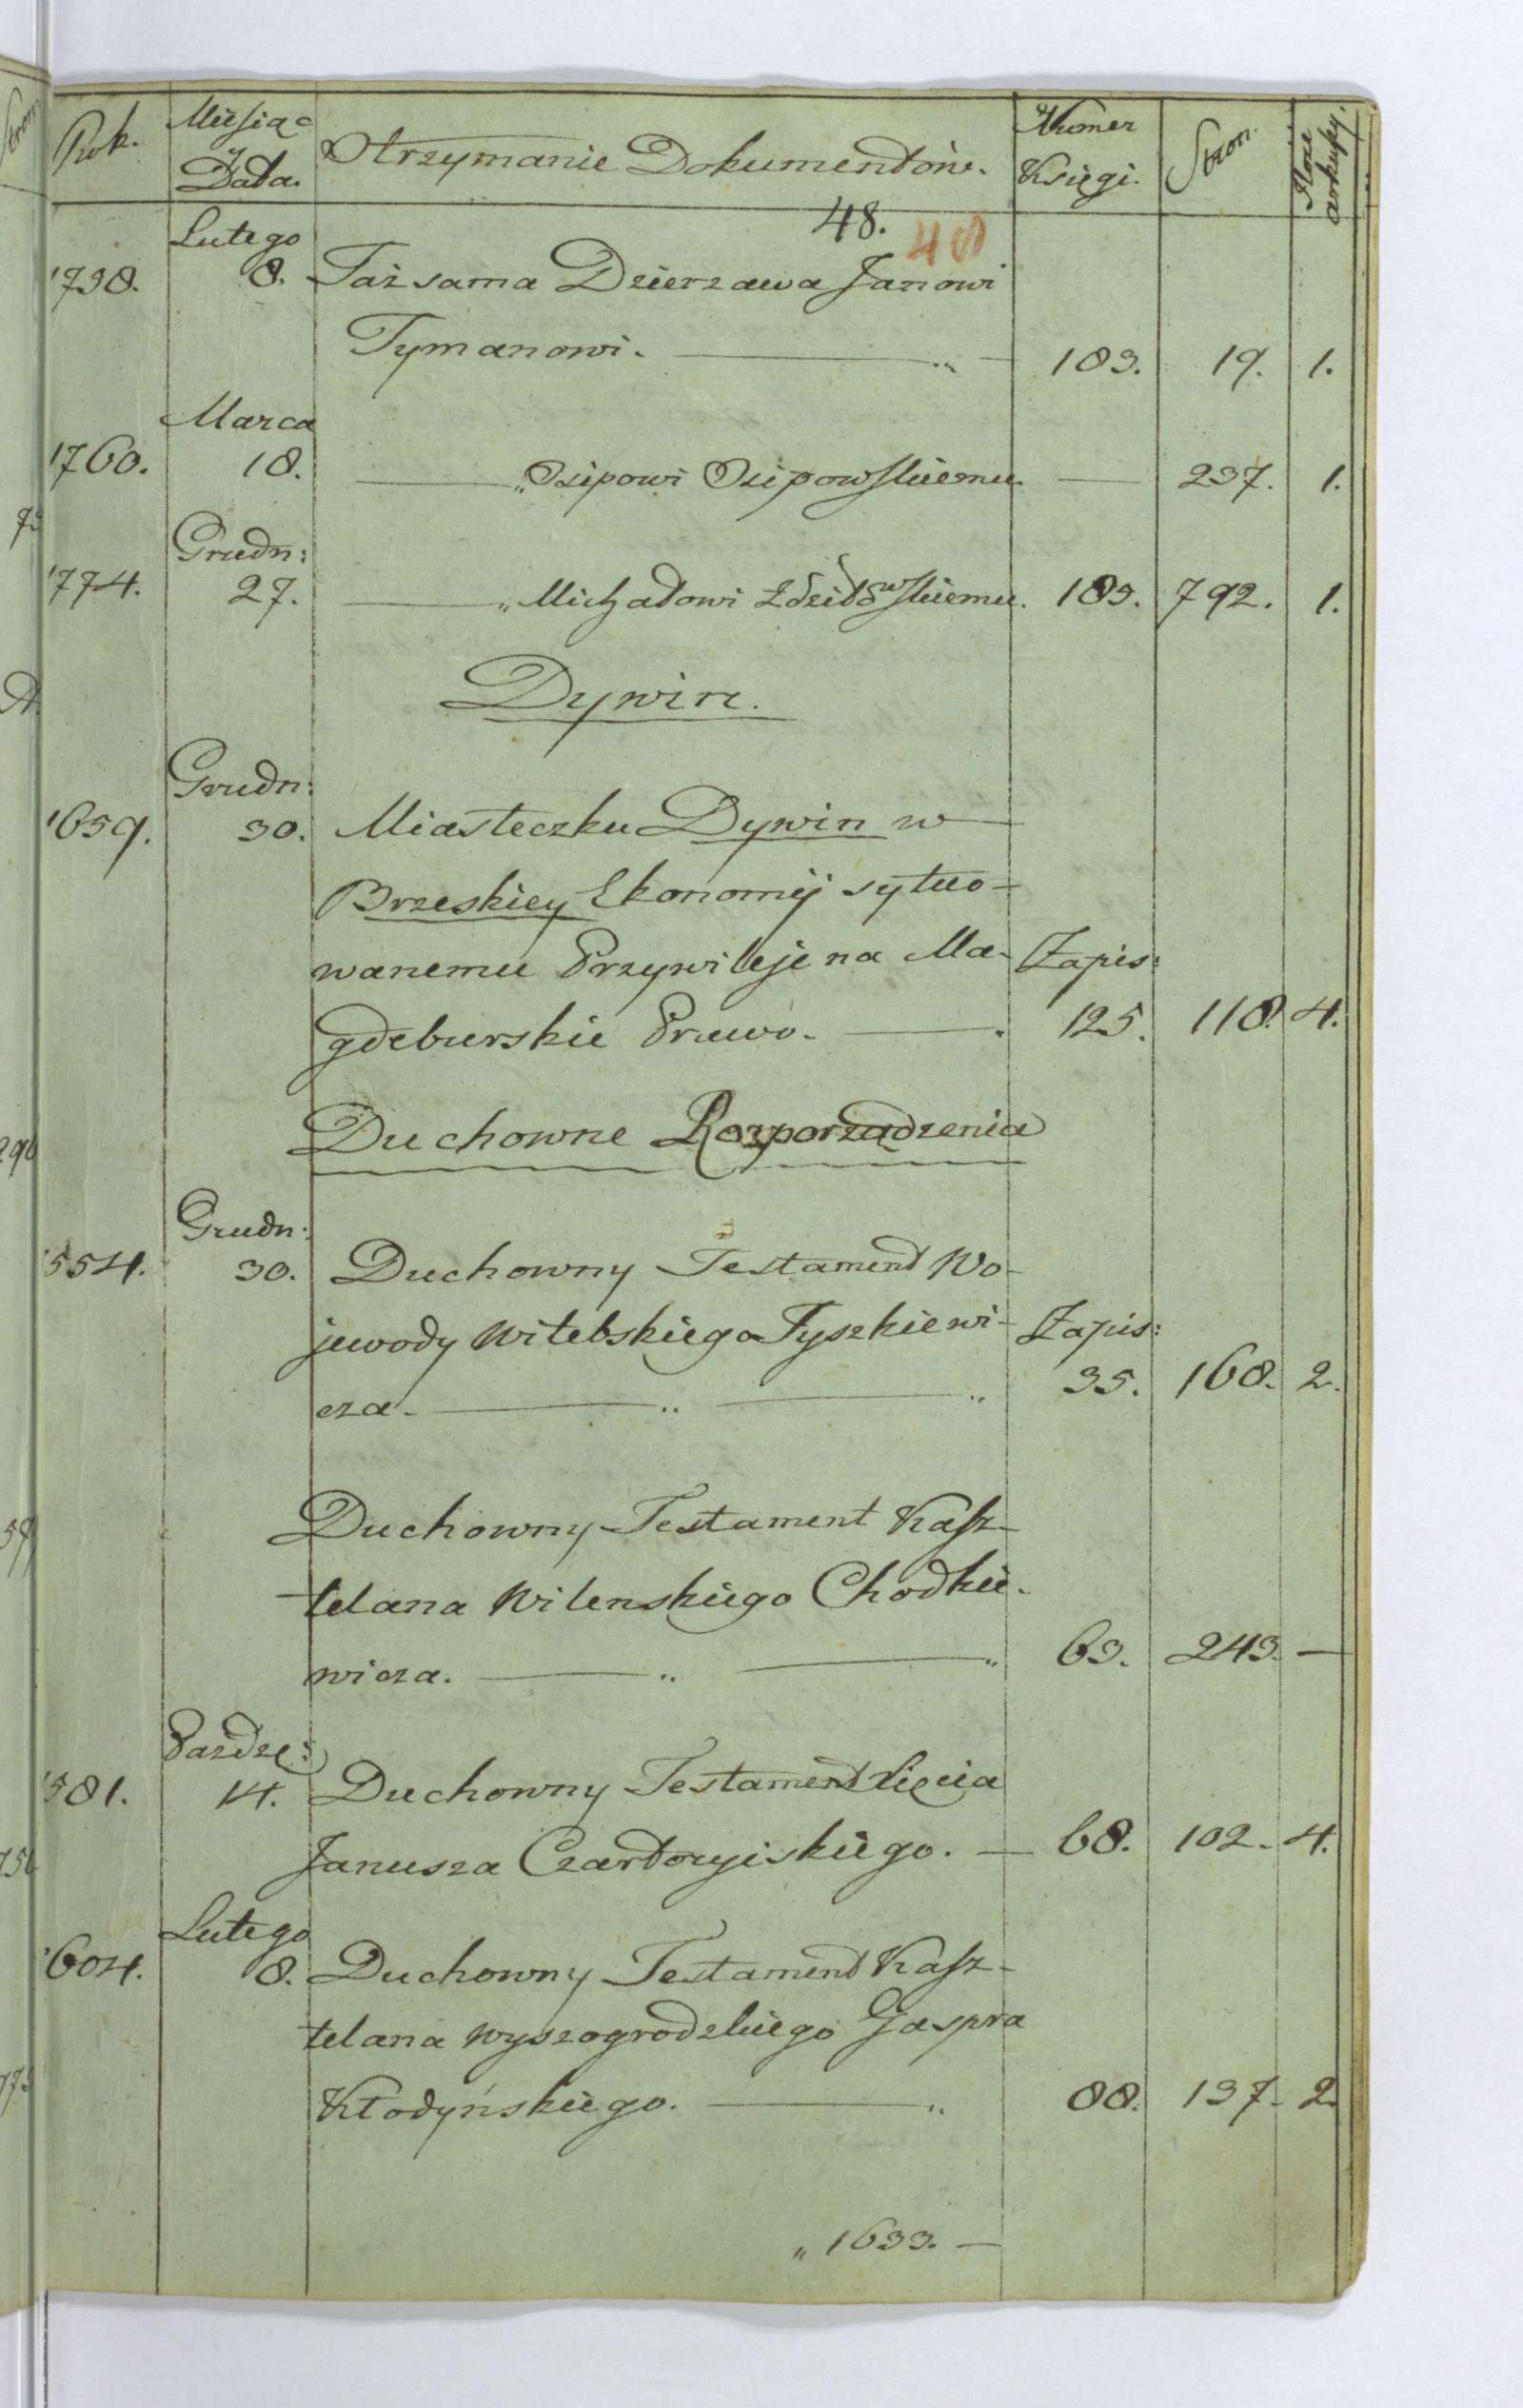 Rok. Miesiąc y Data. Otrzymanie Dokumentów. Numer Księgi. Stron. Ilosc arkuszy.
48. 48
Lutego
1738. 8. Taż sama Dzierzawa Janowi
Tymanowi. — " — 183. 19. 1.
Marca
1760. 18. — " Osipowi Osipowskiemu. — 237. 1.
Grudn:
1774. 27. — " Michałowi Zdzitowskiemu. 189. 792. 1.
Dywin.
Grudn:
1659. 30. Miasteczku Dywin w
Brzeskiey Ekonomij sytuo-
wanemu Przywileje na Ma- Zapis:
gdeburskie Prawo. — 125. 118. 4.
Duchowne Rozporządzenia
Grudn:
1554. 30. Duchowny Testament Wo-
jewody Witebskiego Tyszkiewi- Zapis:
cza. — " — " 35. 168. 2.
Duchowny Testament Kasz-
telana Wilenskiego Chodkie-
wicza. — " — " 63. 243. —
Pazdze:
1581. 14. Duchowny Testament Xięcia
Janusza Czartoryiskiego. — 68. 102. 4.
Lutego
1604. 8. Duchowny Testament Kasz-
telana Wyszogrodzkiego Gaspra
Kłodyńskiego. — " 88. 137. 2.
" 1633. —